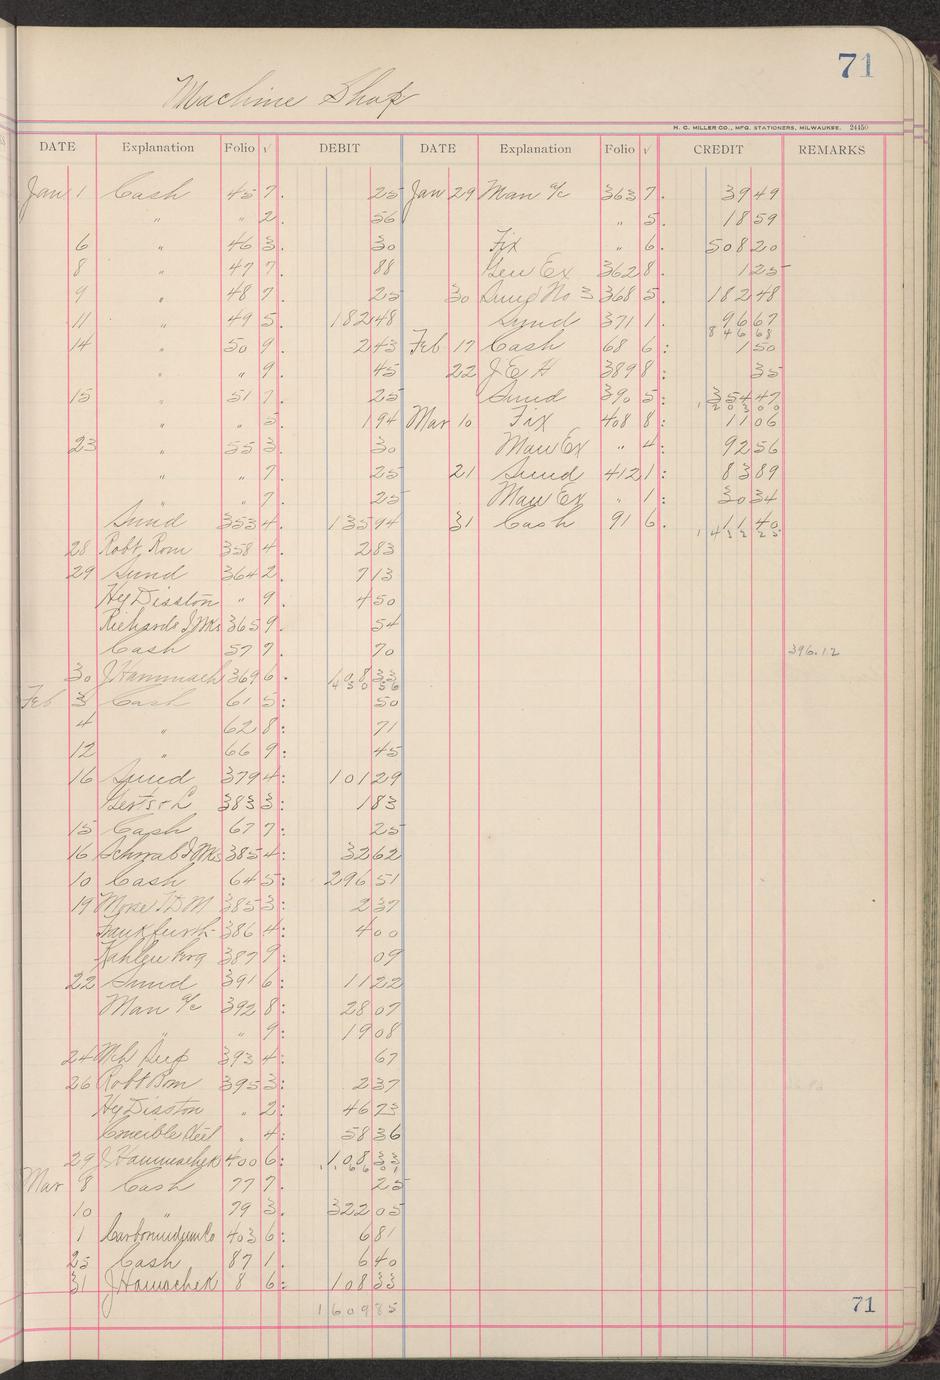 71
Machine Shop
H. C. MILLER CO., MFG. STATIONERS, MILWAUKEE. 24450
DATE Explanation Folio √ DEBIT DATE Explanation Folio √ CREDIT REMARKS
Jan 1 Cash 45 7. 25 Jan 29 Man a/c 363 7. 39 49
" " 2. 56 " 5. 18 59
6 " 46 3. 30 Fix " 6. 508 20
8 " 47 7. 88 Gen Ex 362 8. 1 25
9 " 48 7. 25 30 Sund No 3 368 5. 182 48
11 " 49 5. 182 48 Sund 371 1. 96 67
846 68
14 " 50 9. 2 43 Feb 17 Cash 68 6: 1 50
" " 9. 45 22 J E H 389 8: 35
15 " 51 7. 25 Sund 390 5: 354 47
1203 00
" " 5. 1 94 Mar 10 Fix 408 8: 11 06
23 " 55 3. 30 Man Ex " 4: 92 56
" " 7. 25 21 Sund 412 1: 83 89
" " 7. 25 Man Ex " 1: 30 34
Sund 353 4. 135 94 31 Cash 91 6. 11 40
1432 25
28 Robt. Rom 358 4. 2 83
29 Sund 364 2. 7 13
Hy Disston " 9. 4 50
Richards I Wks 365 9. 54
Cash 57 7. 70
396.12
30 J Hammach 369 6. 108 33
450 56
Feb 3 Cash 61 5: 50
4 " 62 8: 71
12 " 66 9: 45
16 Sund 379 4: 101 29
383 3: 1 83
15 Cash 67 7: 25
16 Schwab I Wks 385 4: 32 62
10 Cash 64 5: 296 51
19 Morse T D M 385 3: 2 37
Frankfurth 386 4: 4 00
Kahlenberg 387 9: 09
22 Sund 391 6: 11 22
Man a/c 392 8: 28 07
" " 9: 19 08
24 Mch Sup 393 4: 67
26 Robt Rom 395 3: 2 37
Hy Disston " 2: 46 73
Crucible Steel " 4: 58 36
29 J Hammachek 400 6: 108 33
1166 01
Mar 8 Cash 77 7. 25
10 " 79 3. 322 05
1 Carborundum Co 403 6: 6 81
25 Cash 87 1. 6 40
31 J Hamachek 8 6: 108 33
1609 85
71